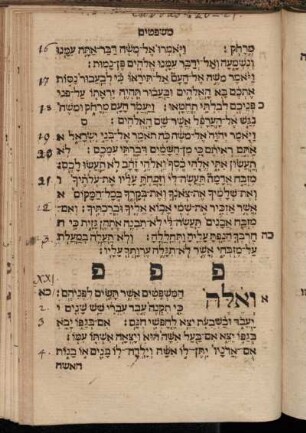 משפטים
16 מרחק : ויאמרו אל־משה דבר־אתה עמנו
ונשמעה ואל־ידבר עמנו אלהים פן־נמות :
17 ויאמר משה אל־העם אל־תיראו כי לבעבור נסות
אתכם בא האלהים ובעבור תהיה יראתו על־פ
18 כ פניכם לבלתי תחטאו : ויעמד העם מרחק ומשה
נגש אל־הערפל אשר־שם האלהים : ס
19 ויאמר יהוה אל־משה כה תאמר אל־בני ישראל
20 אתם ראיתם כי מן־השמים דברתי עמכם : לא
תעשון אתי אלהי כסף ואלהי זהב לא תעשו לכם :
21 מזבח אדמה תעשה־לי וזבחת עליו את־עלתיך
ואת־שלמיך את־צאנך ואת־בקרך בכל־המקום
אשר אזכיר את־שמי אבוא אליך וברכתיך : ואם־
22 מזבח אבנים תעשה־לי לא־תבנה אתהן גזית כי
23 חרבך הנפת עליה ותחללה : ולא־תעלה במעלת
על־מזבחי אשר לא־תגלה ערותך עליו :
פ פ פ
XXI
ואלה המשפטים אשר תשים לפניהם : כא א
2 כי תקנה עבד עברי שש שנים
3 יעבד ובשבעת יצא לחפשי חנם : אם־בגפו יבא
בגפו יצא אם־בעל אשה הוא ויצאה אשתו עמו :
4 אם־אדניו יתן־לו אשה וילדה־לו בנים או בנות
האשה